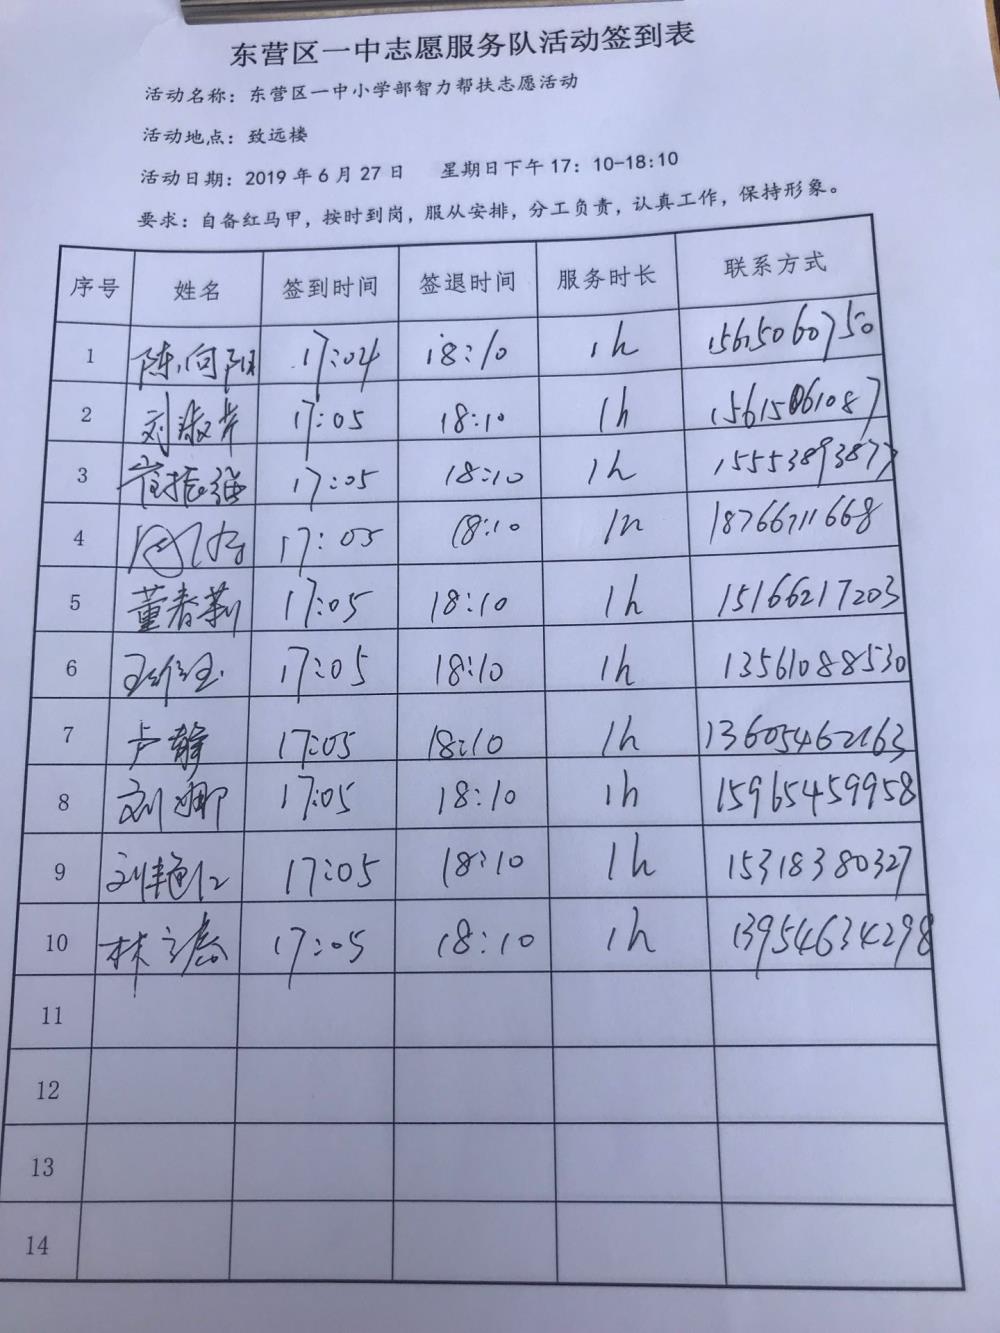 东营区一中志愿服务队活动签到表
活动名称：东营区一中小学部智力帮扶志愿活动
活动地点：致远楼
活动日期：2019 年 6 月 27 日 星期日下午 17：10-18:10
要求：自备红马甲，按时到岗，服从安排，分工负责，认真工作，保持形象。
序号 姓名 签到时间 签退时间 服务时长 联系方式
1 陈向阳 17:04 18:10 1h 15615060750
2 刘淑芹 17:05 18:10 1h 15615061087
3 崔振强 17:05 18:10 1h 15553893877
4 17:05 18:10 1h 18766711668
5 董春莉 17:05 18:10 1h 15166217203
6 17:05 18:10 1h 13561088530
7 卢静 17:05 18:10 1h 13605462163
8 刘娜 17:05 18:10 1h 15965459958
9 刘艳红 17:05 18:10 1h 15318380327
10 17:05 18:10 1h 13954634298
11
12
13
14